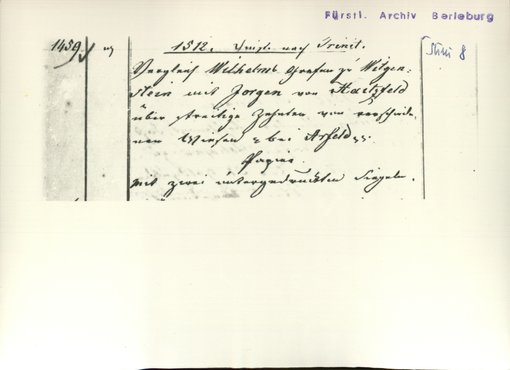 Fürstl. Archiv Berleburg
1459
1512. nach Trinit.
Vergleich Wilhelms Grafen zu Witgen-
stein mit Jorgen von Hatzfeld
über streitige Zehnten von verschiede-
nen Wiesen bei Arfeld
Papier
mit zwei untergedruckten Siegeln.